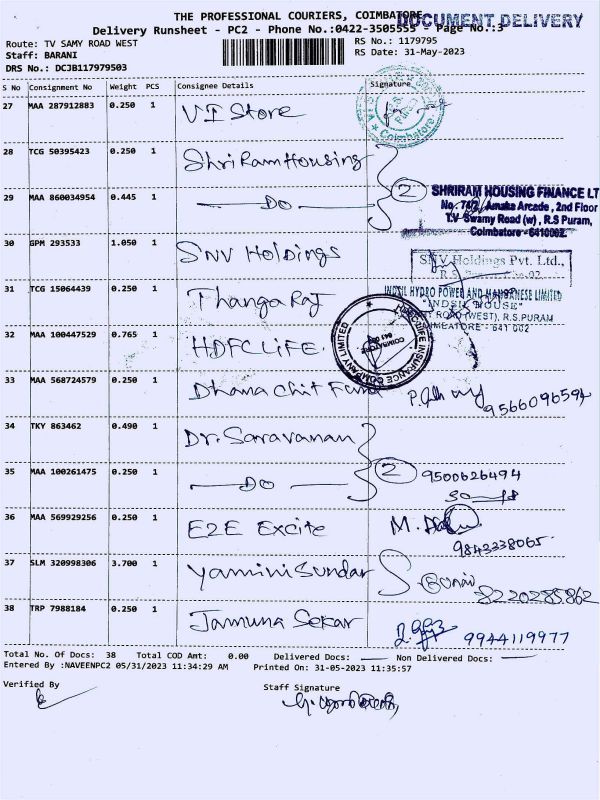 THE PROFESSIONAL COURIERS, COIMBATORE
DOCUMENT DELIVERY
Delivery Runsheet - PC2 - Phone No.:0422-3505555 - Page No.:3
Route: TV SAMY ROAD WEST
RS No.: 1179795
Staff: BARANI
RS Date: 31-May-2023
DRS No.: DCJB117979503
S No Consignment No Weight PCS Consignee Details Signature
27 MAA 287912883 0.250 1 VI Store for
Coimbatore
28 TCG 50395423 0.250 1 Shri Ram Housing
29 MAA 860034954 0.445 1 — DO — 2
SHRIRAM HOUSING FINANCE LT
No. 74/2, Amaka Arcade, 2nd Floor
T.V Swamy Road (w), R.S Puram,
Coimbatore - 641000Z
30 GPM 293533 1.050 1 SNV Holdings
SNV Holdings Pvt. Ltd.,
31 TCG 15064439 0.250 1 Thanga Raj
INDSIL HYDRO POWER AND MANGANESE LIMITED
"INDSIL HOUSE"
ROAD (WEST), R.S.PURAM
COIMBATORE - 641 002
32 MAA 100447529 0.765 1 HDFC LIFE.
HDFC LIFE INSURANCE COMPANY LIMITED
COIMBATORE
33 MAA 568724579 0.250 1 Dhana Chit Fund
9566096594
34 TKY 863462 0.490 1 Dr. Saravanan
35 MAA 100261475 0.250 1 — DO — 2 9500626494
36 MAA 569929256 0.250 1 E2E Excite M.
9843338065
37 SLM 320998306 3.700 1 Yamini Sundar
8220285862
38 TRP 7988184 0.250 1 Jamuna Sekar 9944119977
Total No. Of Docs: 38 Total COD Amt: 0.00 Delivered Docs: — Non Delivered Docs: —
Entered By :NAVEENPC2 05/31/2023 11:34:29 AM Printed On: 31-05-2023 11:35:57
Verified By
Staff Signature